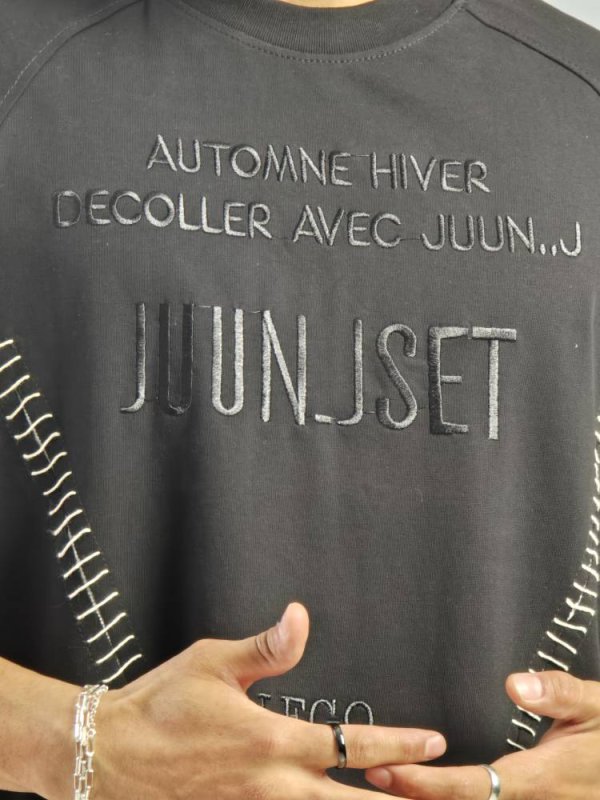 AUTOMNE HIVER
DECOLLER AVEC JUUN..J
JUUN.JSET